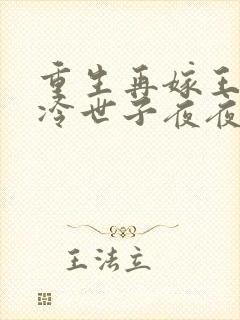 重生再嫁王
冷世子夜夜
王法立